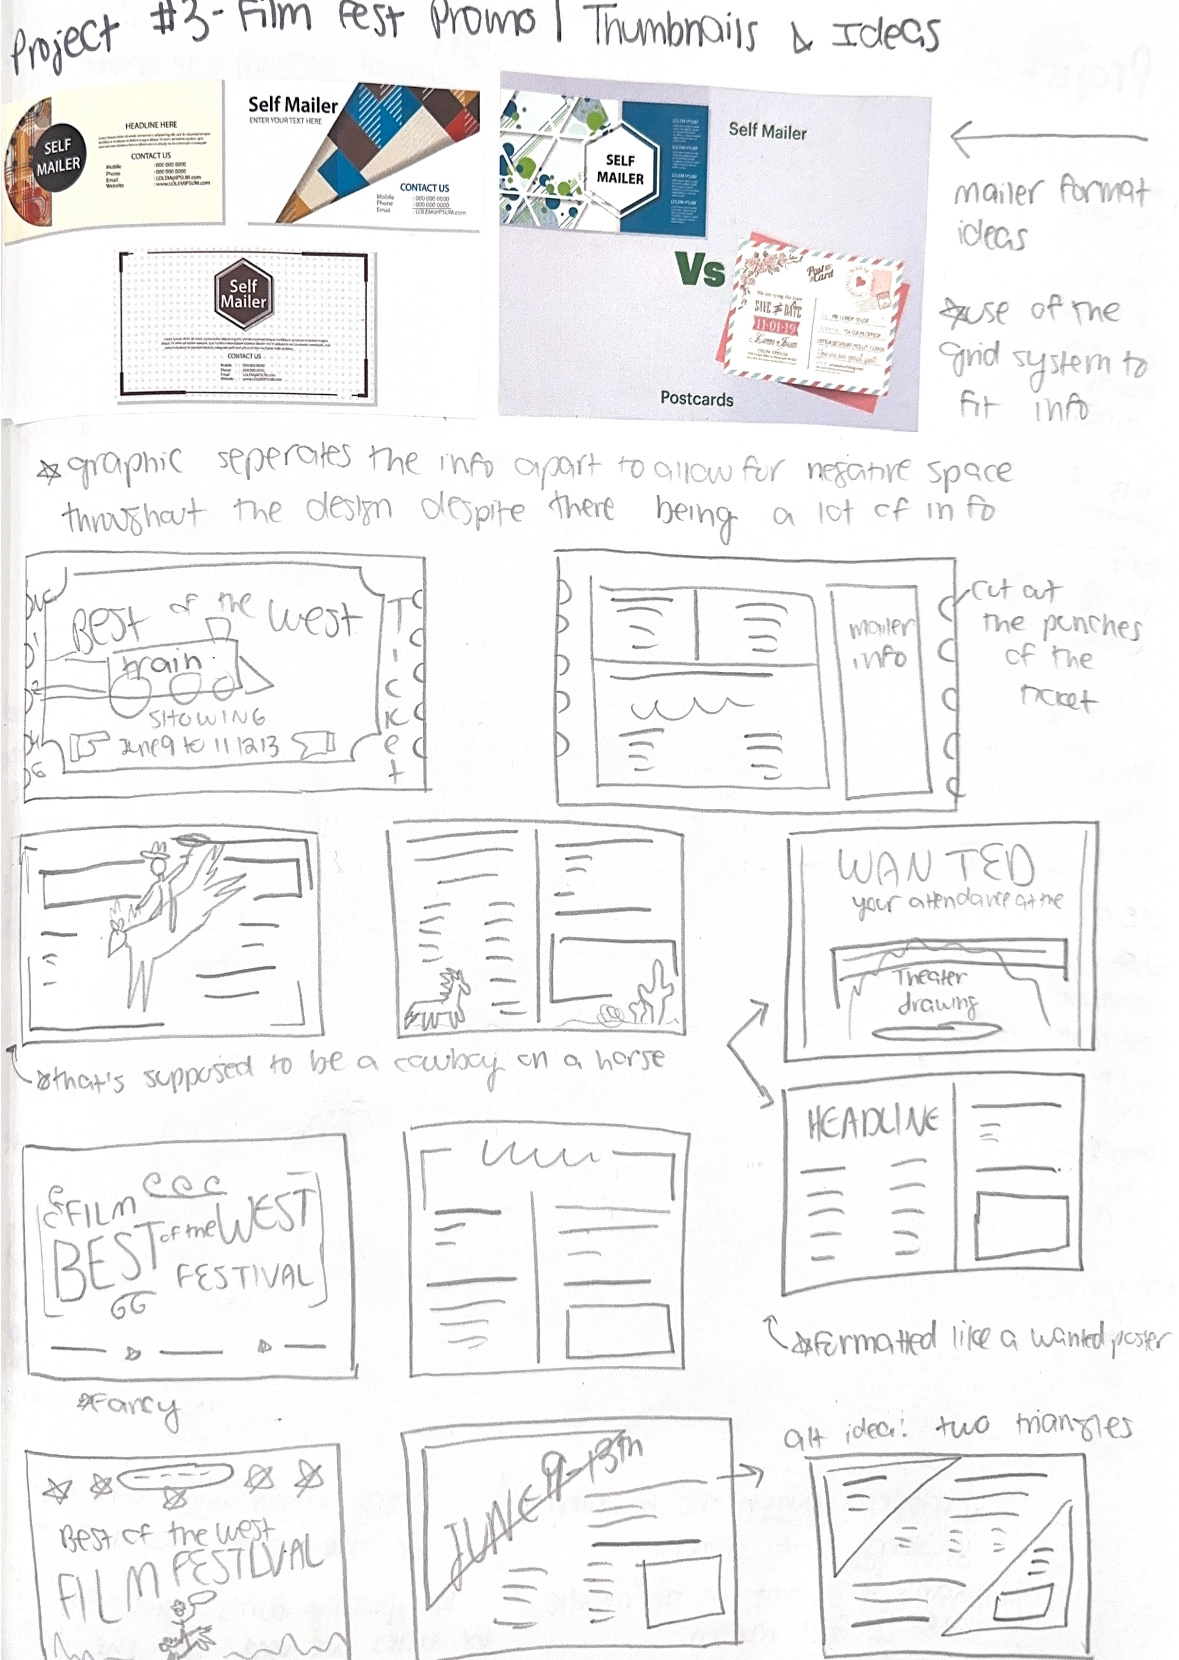 Project #3 - Film Fest Promo | Thumbnails & Ideas
SELF
MAILER
HEADLINE HERE
CONTACT US
Mobile : 000 000 0000
Phone : 000 000 0000
Email : LOLEM@IPSUM.com
Website : www.LOLEMIPSUM.com
Self Mailer
ENTER YOUR TEXT HERE
CONTACT US
Mobile : 000 000 0000
Phone : 000 000 0000
Email : LOLEM@IPSUM.com
SELF
MAILER
LOLEM IPSUM
LOLEM IPSUM
LOLEM IPSUM
LOLEM IPSUM
Self Mailer
Vs
Post
Card
SAVE THE DATE
11-01-19
Lorem Ipsum
Postcards
Self
Mailer
CONTACT US
mailer format
ideas
*use of the
grid system to
fit info
* graphic seperates the info apart to allow for negative space
throughout the design despite there being a lot of info
Best of the West
train
SHOWING
June 9 to 11 12 13
TICKet
mailer
info
cut out
the punches
of the
ticket
WANTED
your attendance at the
Theater
drawing
*that's supposed to be a cowboy on a horse
HEADLINE
*formatted like a wanted poster
FILM
BEST of the WEST
FESTIVAL
*Fancy
alt idea: two triangles
JUNE 9-13th
Best of the West
FILM FESTIVAL